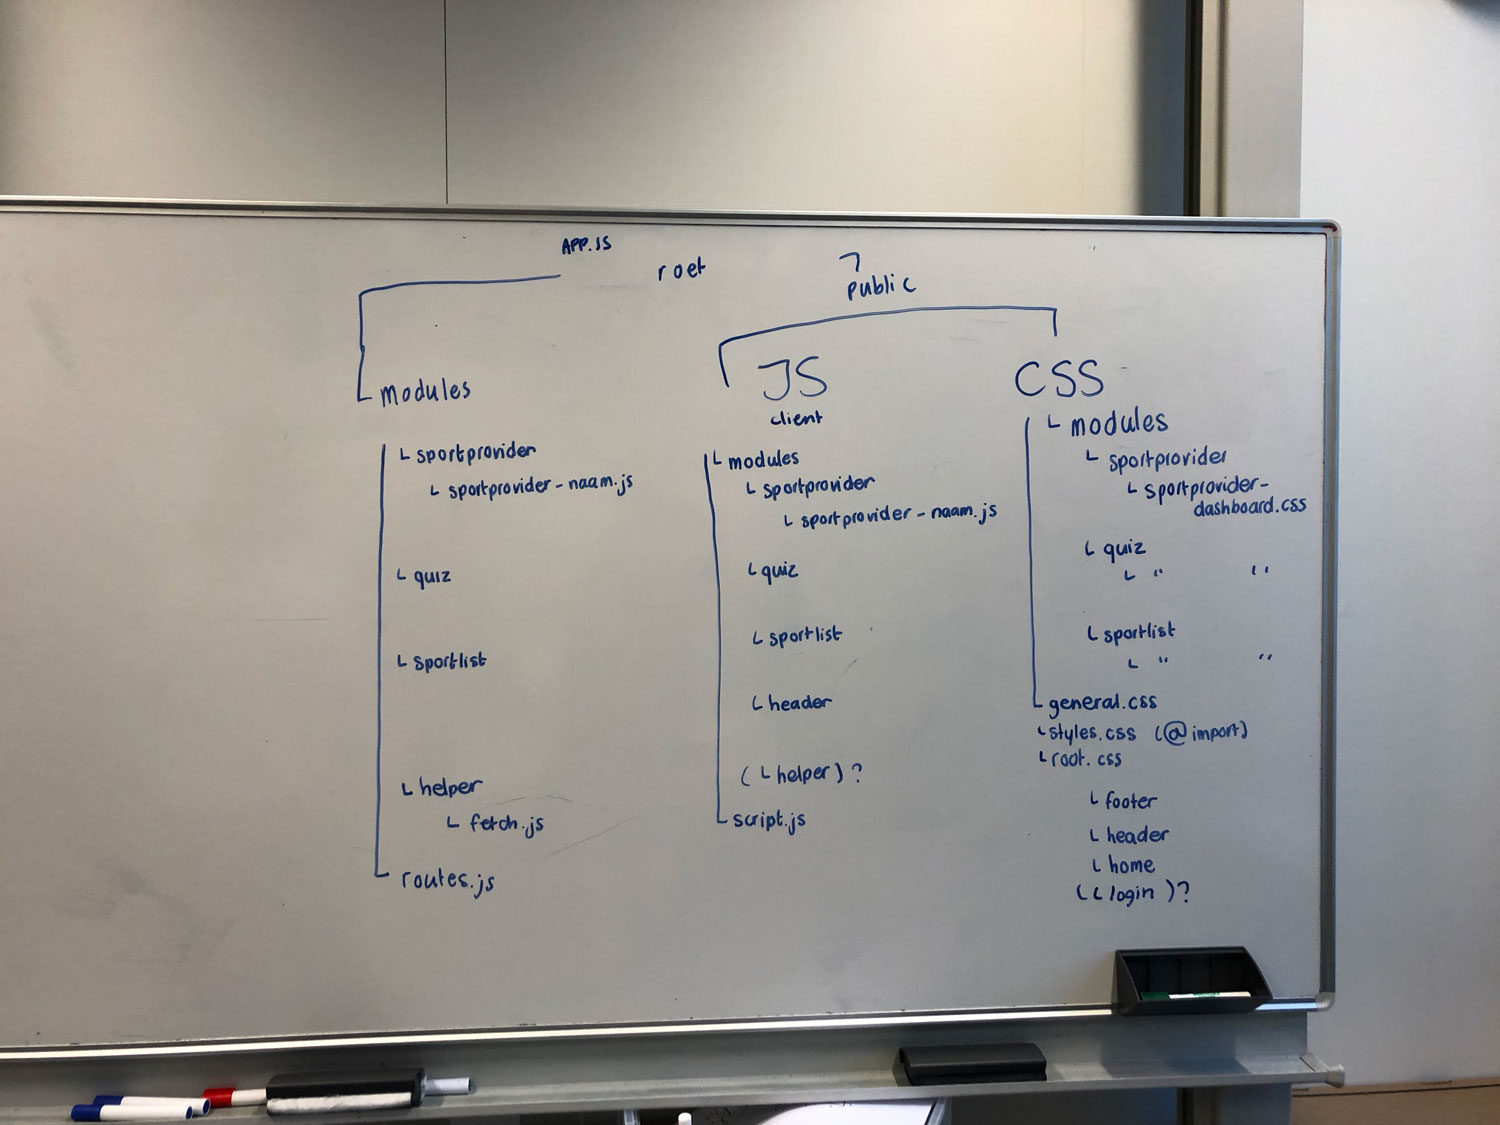 APP.JS
root
public
modules
└ sportprovider
└ sportprovider-naam.js
└ quiz
└ sportlist
└ helper
└ fetch.js
routes.js
JS
client
└ modules
└ sportprovider
└ sportprovider-naam.js
└ quiz
└ sportlist
└ header
(└ helper)?
script.js
CSS
└ modules
└ sportprovider
└ sportprovider-
dashboard.css
└ quiz
└ " "
└ sportlist
└ " "
general.css
└ styles.css (@import)
└ root.css
└ footer
└ header
└ home
(└ login)?